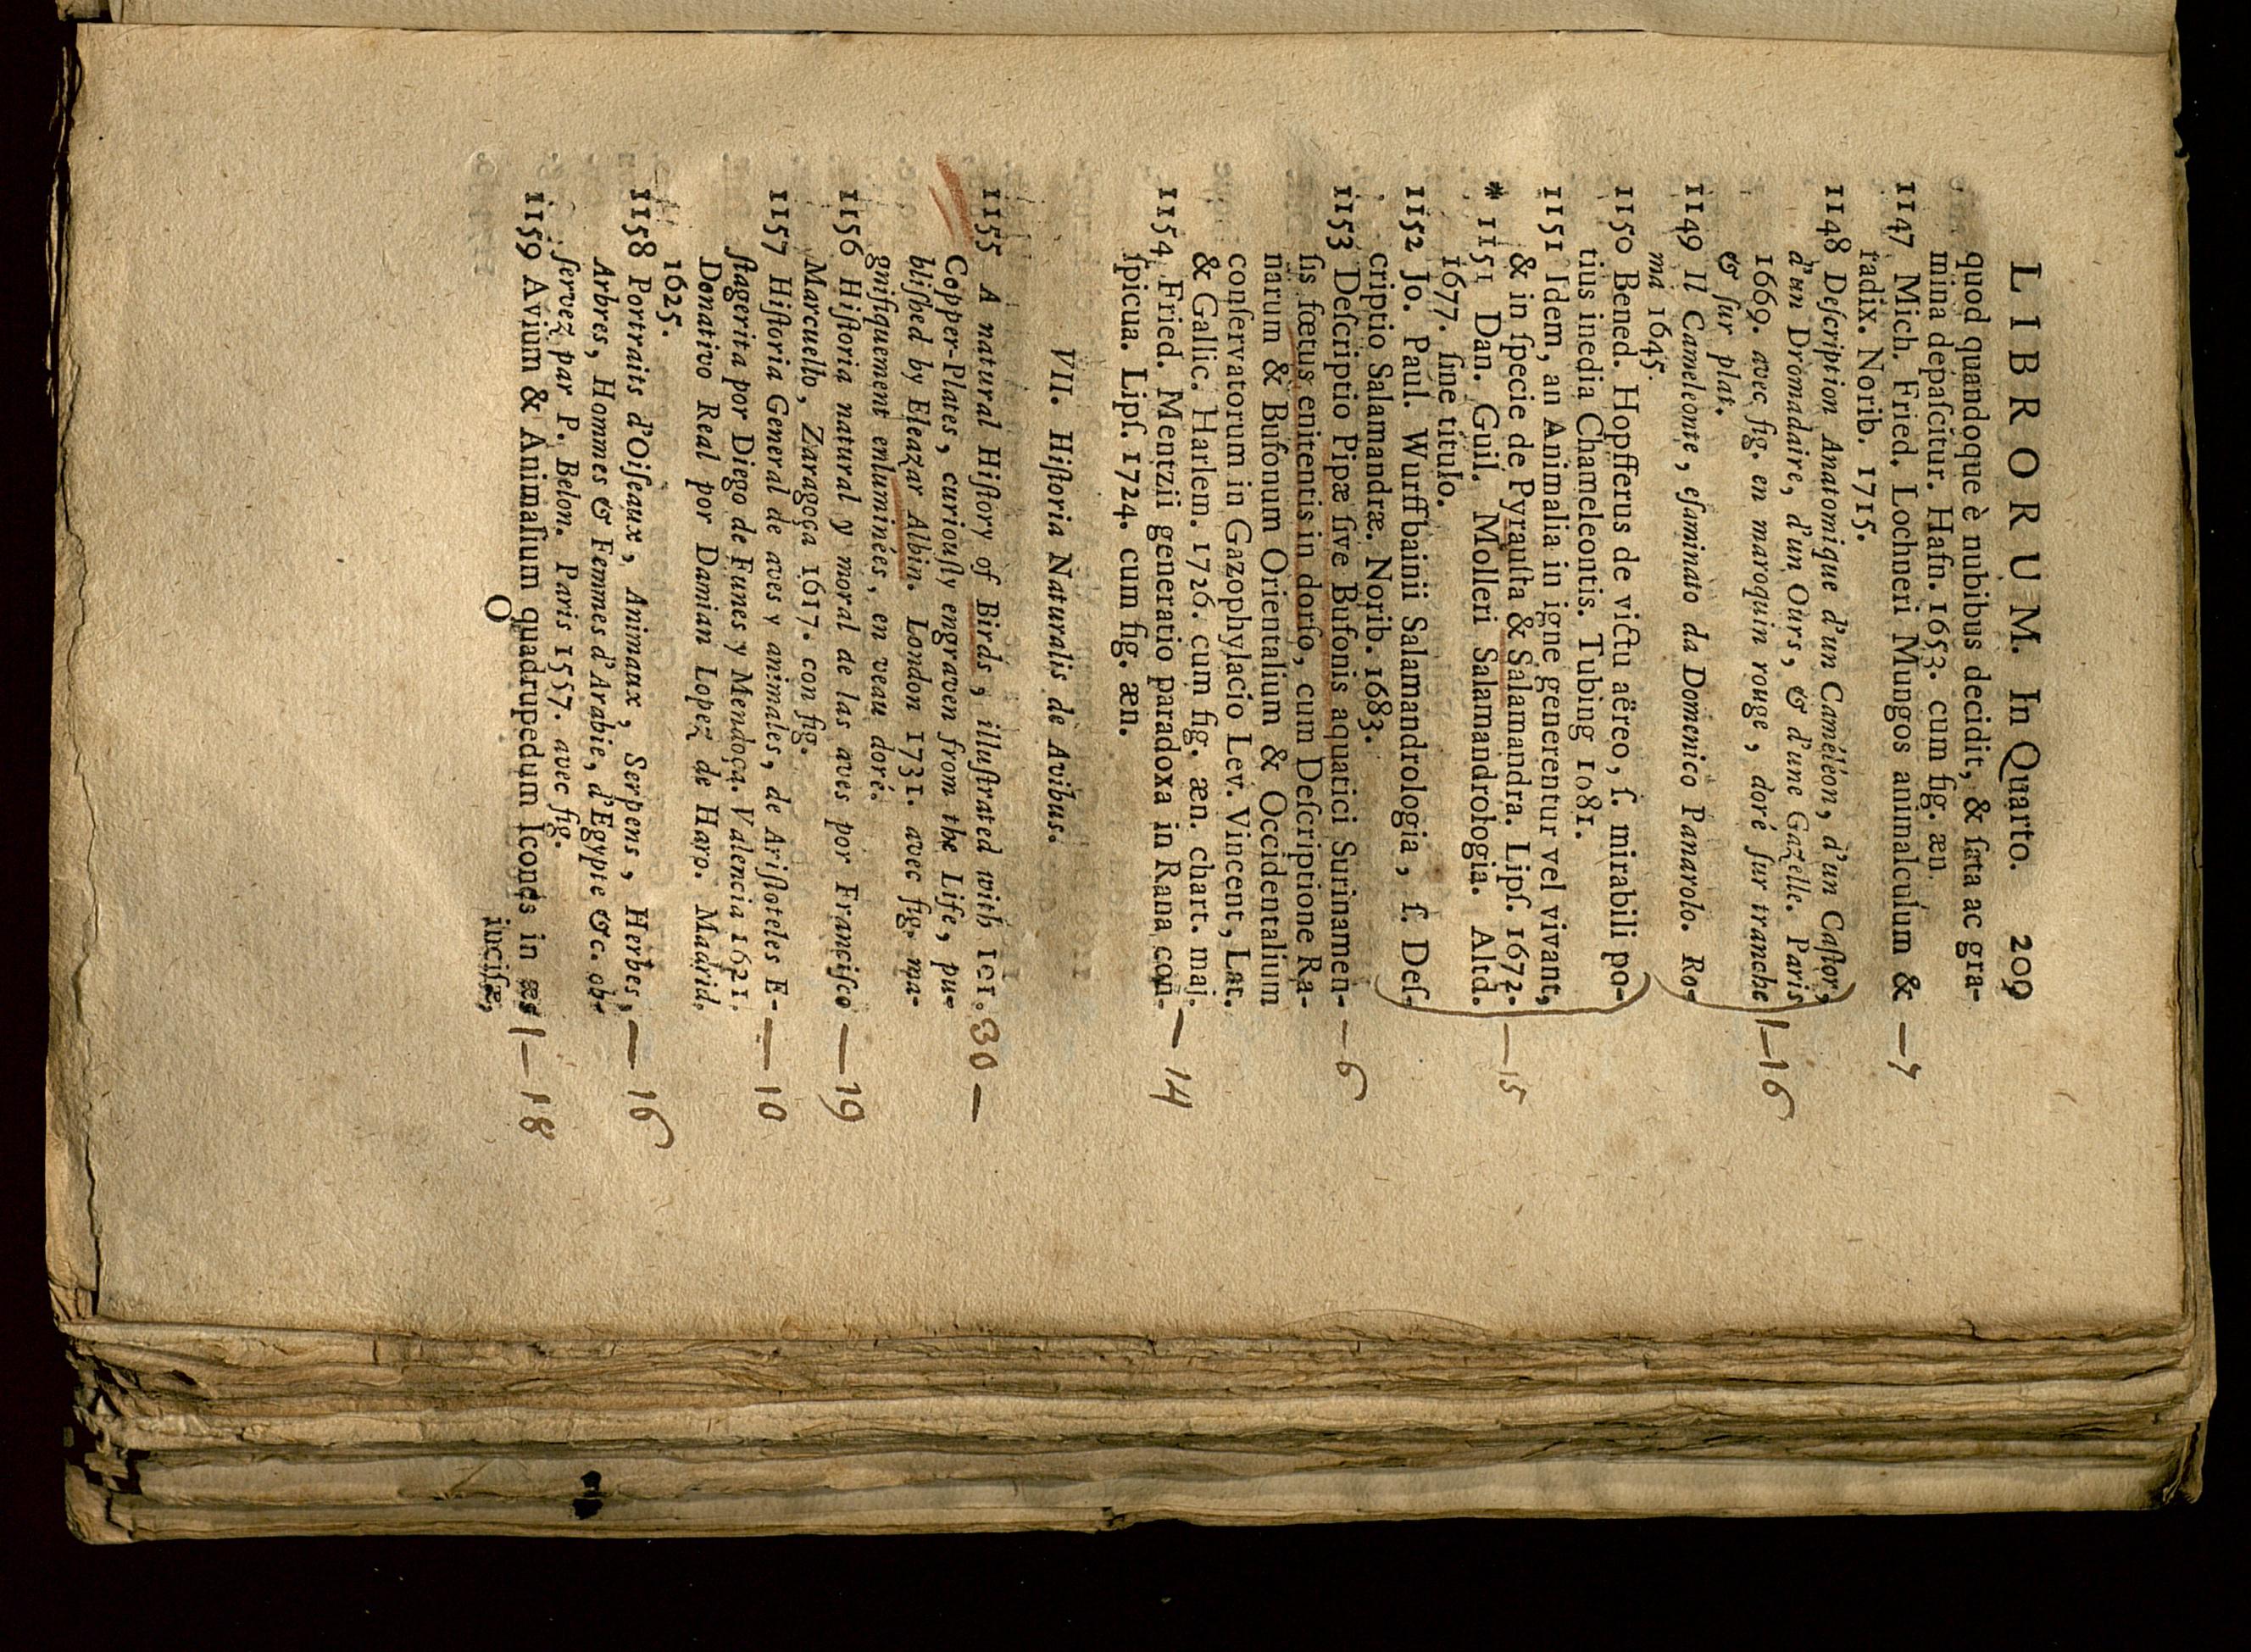 LIBRORUM. In Quarto. 209
quod quandoque è nubibus decidit, & ſata ac gra-
mina depaſcitur. Hafn. 1653. cum fig. æn.
1147 Mich. Fried. Lochneri Mungos animalculum & — 7
radix. Norib. 1715.
1148 Deſcription Anatomique d'un Caméléon, d'un Caſtor,
d'un Dromadaire, d'un Ours, & d'une Gazelle. Paris
1669. avec fig. en maroquin rouge, doré ſur tranche 1—16
& ſur plat.
1149 Il Cameleonte, eſaminato da Domenico Panarolo. Ro-
ma 1645.
1150 Bened. Hopfferus de victu aëreo, ſ. mirabili po-
tius inedia Chameleontis. Tubing 1081.
1151 Idem, an Animalia in igne generentur vel vivant,
& in ſpecie de Pyrauſta & Salamandra. Lipſ. 1672. — 15
* 1151 Dan. Guil. Molleri Salamandrologia. Altd.
1677. ſine titulo.
1152 Jo. Paul. Wurffbainii Salamandrologia, ſ. Deſ-
criptio Salamandræ. Norib. 1683.
1153 Deſcriptio Pipæ ſive Bufonis aquatici Surinamen- — 6
ſis fœtus enitentis in dorſo, cum Deſcriptione Ra-
narum & Bufonum Orientalium & Occidentalium
conſervatorum in Gazophylacio Lev. Vincent, Lat.
& Gallic. Harlem. 1726. cum fig. æn. chart. maj.
1154 Fried. Mentzii generatio paradoxa in Rana con- — 14
ſpicua. Lipſ. 1724. cum fig. æn.
VII. Hiſtoria Naturalis de Avibus.
1155 A natural Hiſtory of Birds, illuſtrated with 101. 30 —
Copper-Plates, curiouſly engraven from the Life, pu-
bliſhed by Eleazar Albin. London 1731. avec fig. ma-
gnifiquement enluminées, en veau doré.
1156 Hiſtoria natural y moral de las aves por Franciſco — 19
Marcuello, Zaragoça 1617. con fig.
1157 Hiſtoria General de aves y animales, de Ariſtoteles E- — 10
ſtagerita por Diego de Funes y Mendoça. Valencia 1621.
Donativo Real por Damian Lopez de Haro. Madrid.
1625.
1158 Portraits d'Oiſeaux, Animaux, Serpens, Herbes, — 16
Arbres, Hommes & Femmes d'Arabie, d'Egypte &c. ob-
ſervez par P. Belon. Paris 1557. avec fig.
1159 Avium & Animalium quadrupedum Icones in æs 1—18
O inciſæ,